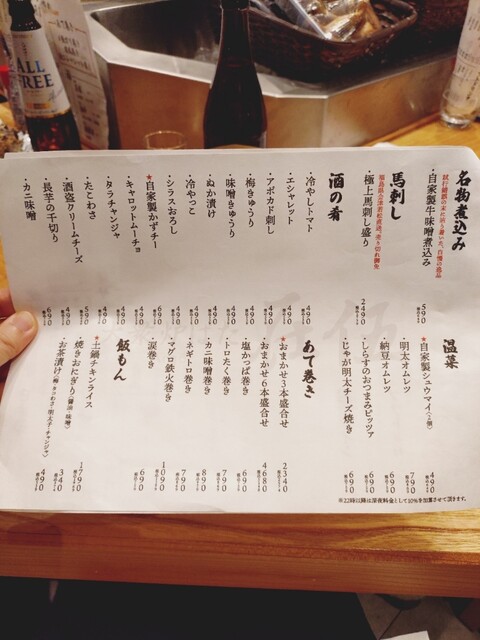 ALL
FREE
名物煮込み
試行錯誤の末に辿り着いた、自慢の逸品
・自家製牛味噌煮込み 590
馬刺し
福島県会津若松直送、売り切れ御免
・極上馬刺し盛り 2490
酒の肴
・冷やしトマト 490
・エシャレット 490
・アボカド刺し 490
・梅きゅうり 490
・味噌きゅうり 490
・ぬか漬け 490
・冷やっこ 490
・シラスおろし 490
★自家製かずチー 690
・キャロットムーチョ 490
・タラチャンジャ 490
・たこわさ 490
・酒盗クリームチーズ 590
・長芋の千切り 490
・カニ味噌 690
温菜
★自家製シュウマイ(2個) 490
・明太オムレツ 790
・納豆オムレツ 690
・しらすのおつまみピッツァ 690
・じゃが明太チーズ焼き 690
あて巻き
★おまかせ3本盛合せ 2340
・おまかせ6本盛合せ 4680
・塩かっぱ巻き 690
・トロたく巻き 790
・カニ味噌巻き 790
・ネギトロ巻き 890
・マグロ鉄火巻き 790
・涙巻き 690
飯もん
★土鍋チキンライス 1790
・焼きおにぎり(醤油・味噌) 340
・お茶漬け(梅・タコわさ・明太子・チャンジャ) 490
※22時以降は深夜料金として10%を加算させて頂きます。